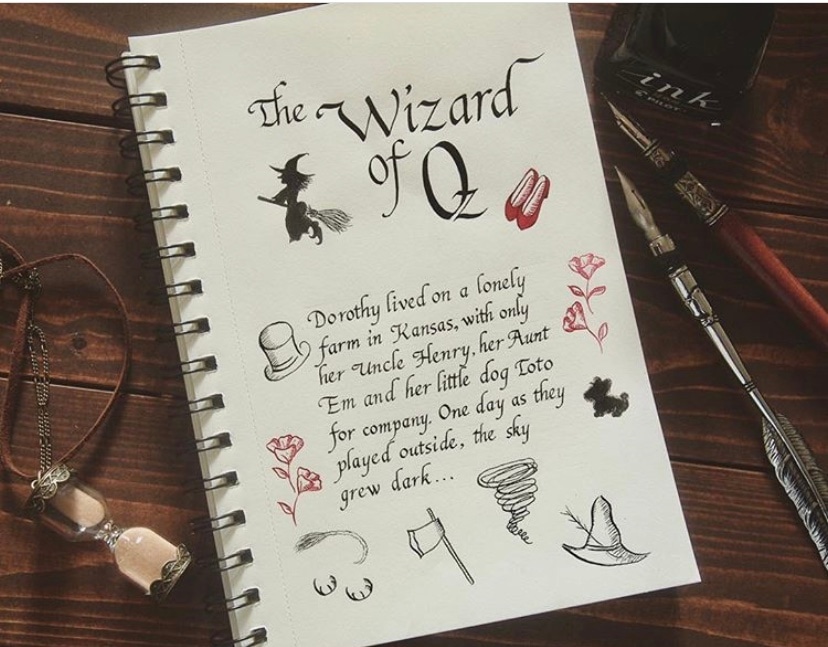 The Wizard
of Oz
Dorothy lived on a lonely
farm in Kansas, with only
her Uncle Henry, her Aunt
Em and her little dog Toto
for company. One day as they
played outside, the sky
grew dark...
ink